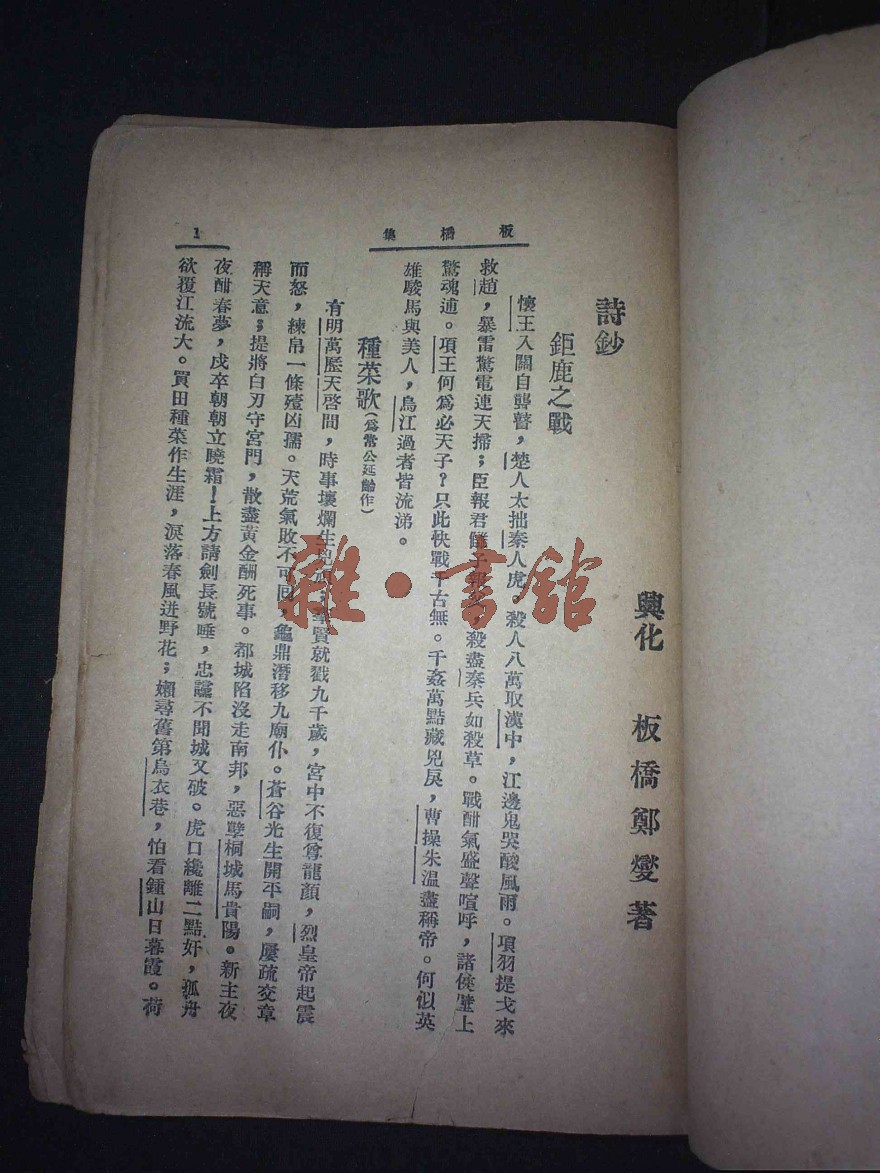 板橋集
詩鈔
興化 板橋鄭燮著
鉅鹿之戰
懷王入關自聾瞽，楚人太拙秦人虎，殺人八萬取漢中，江邊鬼哭酸風雨。項羽提戈來
救趙，暴雷驚電連天掃；臣報君讎子報，殺盡秦兵如殺草。戰酣氣盛聲喧呼，諸侯壁上
驚魂逋。項王何爲必天子？只此快戰千古無。千姦萬黠藏兇戾，曹操朱溫盡稱帝。何似英
雄駿馬與美人，烏江過者皆流涕。
種菜歌（爲常公延齡作）
有明萬歷天啓間，時事壞爛生兇頑，羣賢就戮九千歲，宮中不復尊龍顏，烈皇帝起震
而怒，練帛一條殪凶孺。天荒氣敗不可回，龜鼎潛移九廟仆。蒼谷光生開平嗣，屢疏交章
稱天意；提將白刃守宮門，散盡黃金酬死事。都城陷沒走南邦，惡孽桐城馬貴陽。新主夜
夜酣春夢，戍卒朝朝立曉霜！上方請劍長號唾，忠讜不聞城又破。虎口纔離二點奸，孤舟
欲覆江流大。買田種菜作生涯，淚落春風迸野花；嬾尋舊第烏衣巷，怕看鍾山日暮霞。荷
1
雜·書館